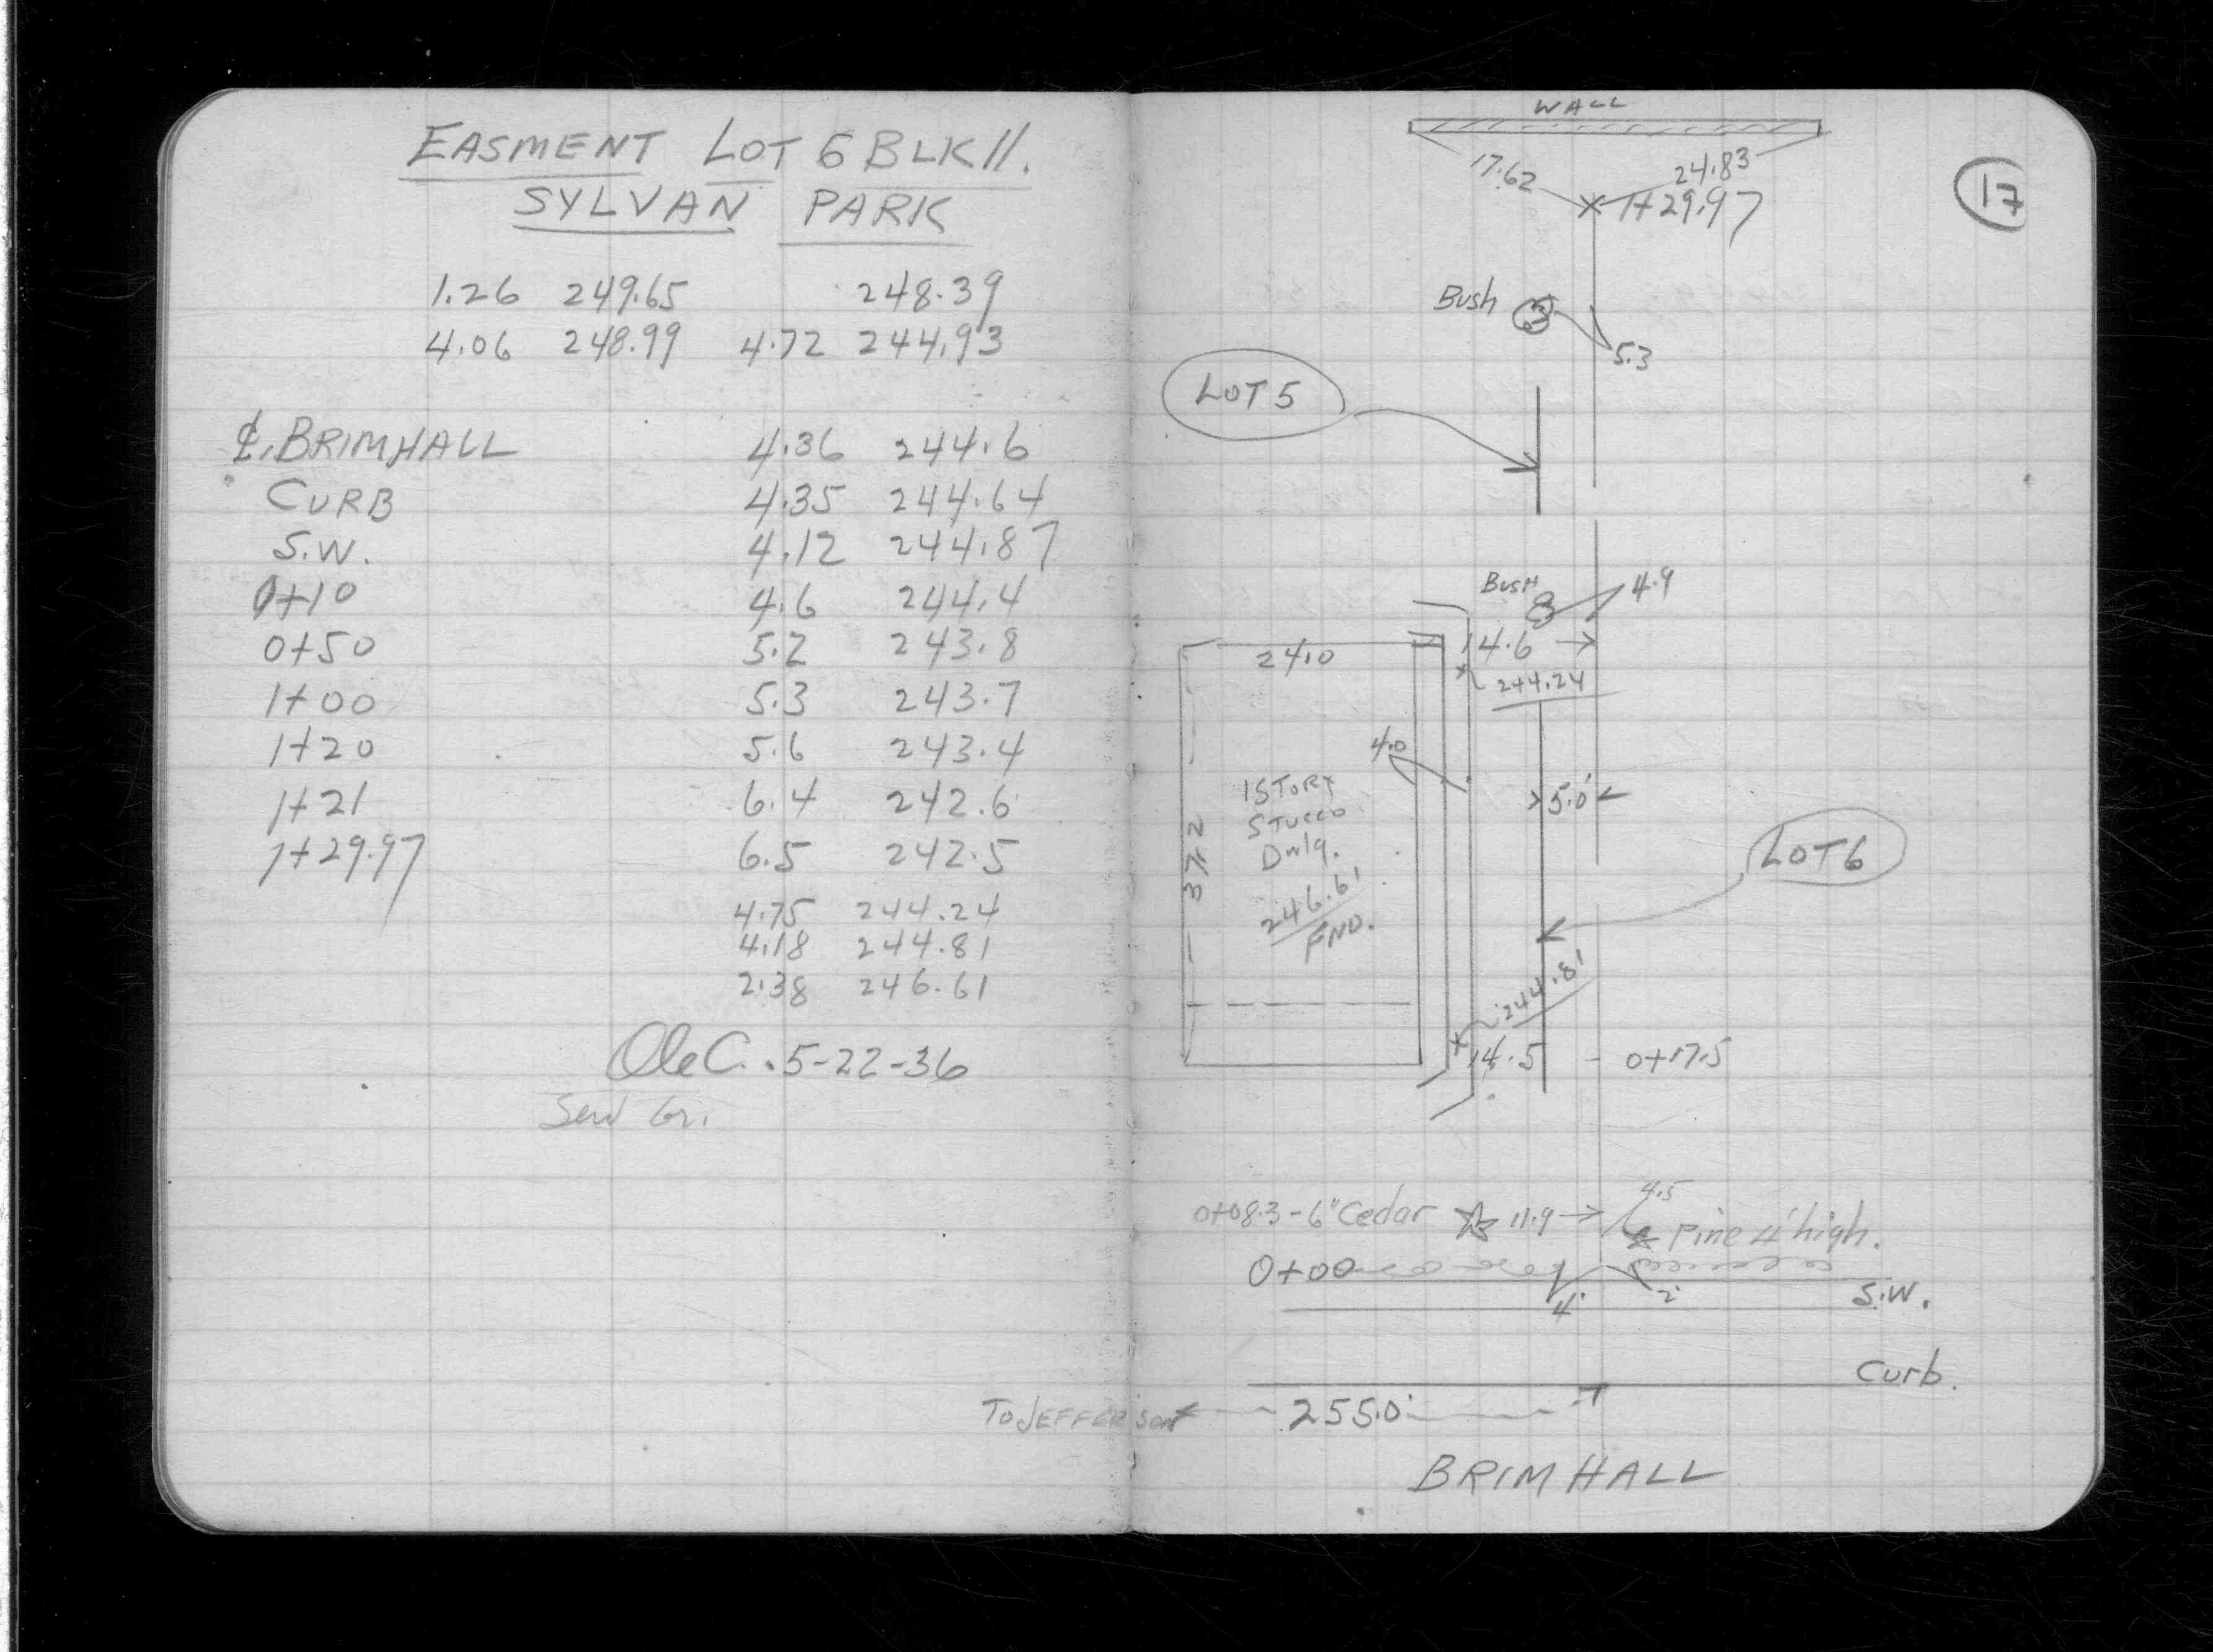 EASMENT LOT 6 BLK 11.
SYLVAN PARK
1.26 249.65 248.39
4.06 248.99 4.72 244.93
℄ BRIMHALL 4.36 244.6
CURB 4.35 244.64
S.W. 4.12 244.87
0+10 4.6 244.4
0+50 5.2 243.8
1+00 5.3 243.7
1+20 5.6 243.4
1+21 6.4 242.6
1+29.97 6.5 242.5
4.75 244.24
4.18 244.81
2.38 246.61
OleC. 5-22-36
WALL
17
17.62 24.83
1+29.97
Bush
5.3
LOT 5
BUSH 4.9
24.0 14.6
244.24
4.0
1 STORY
STUCCO
Dwlg.
246.61
FND.
37.2
5.0'
LOT 6
244.81
14.5 0+17.5
4.5
0+08.3-6" Cedar 11.9 Pine 4' high.
0+00
4' 2'
S.W.
Curb.
TO JEFFERSON 255.0'
BRIMHALL